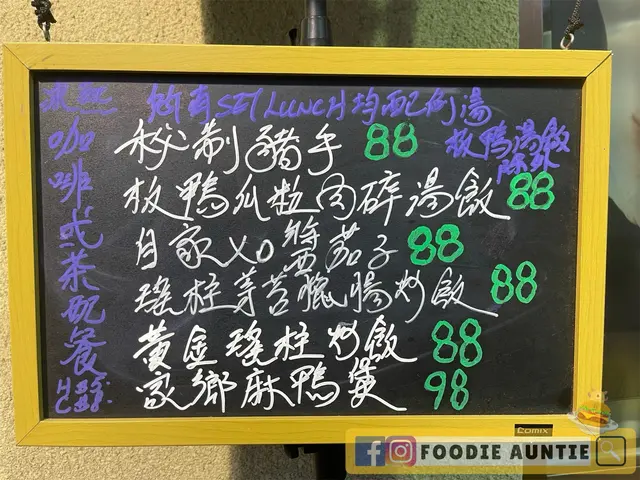 所有SET LUNCH均配例湯
板鴨湯飯
除外
秘制豬手 88
板鴨瓜粒肉碎湯飯 88
自家XO醬茄子 88
瑤柱芽菩臘腸炒飯 88
黃金瑤柱炒飯 88
家鄉麻鴨煲 98
咖啡或茶配餐
H$5.
C$8.
COMIX
FOODIE AUNTIE